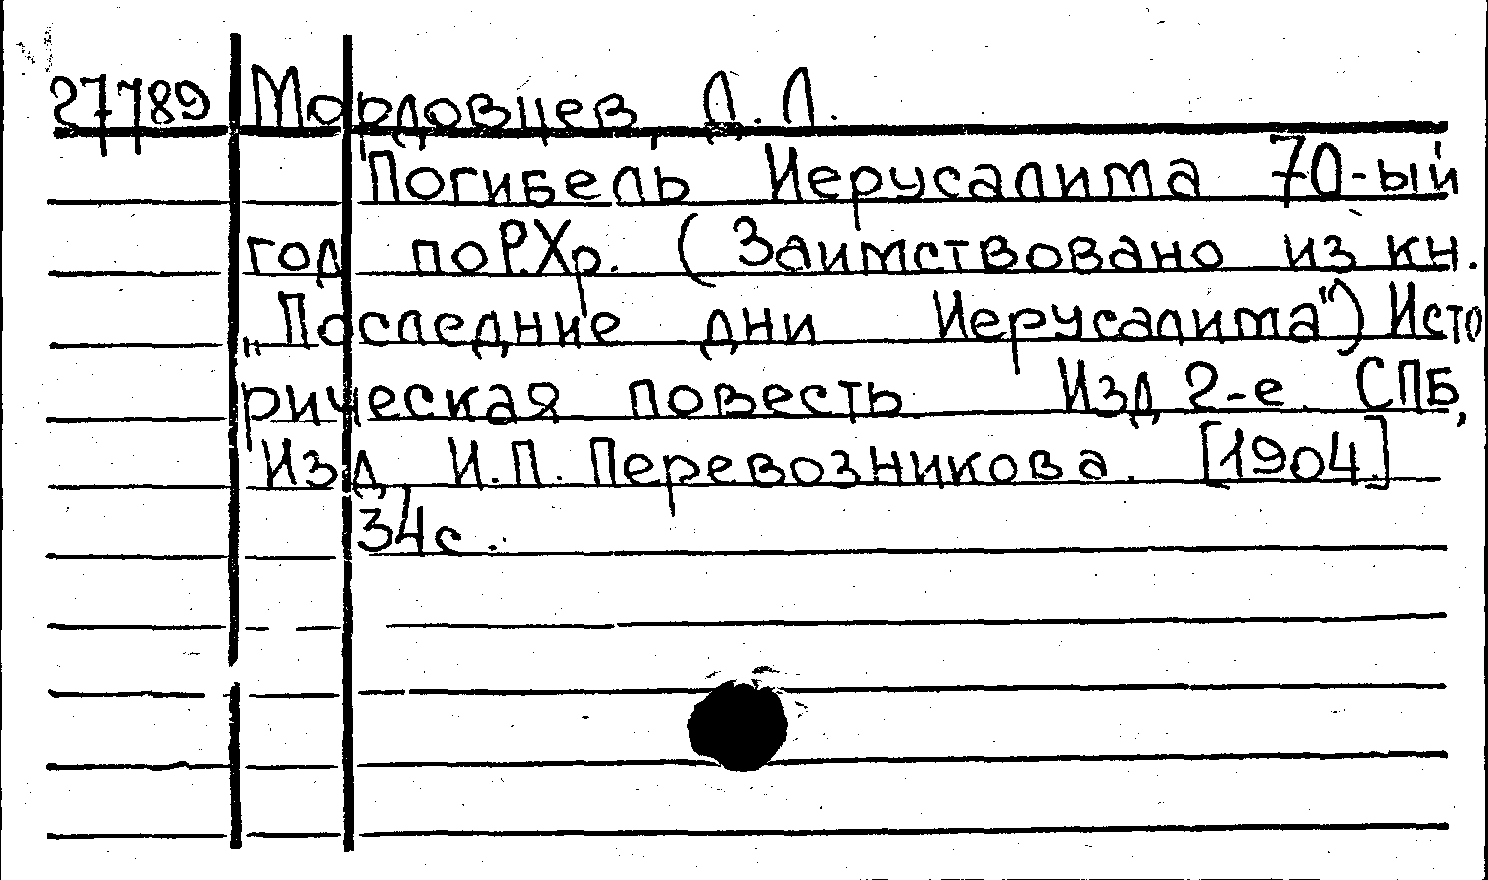 27789 Мордовцев, Д. Л.
Погибель Иерусалима 70-ый
год по Р.Хр. (Заимствовано из кн.
„Последние дни Иерусалима") Исто
рическая повесть. Изд. 2-е. СПБ,
Изд. И.П. Перевозникова. [1904.]
34с.